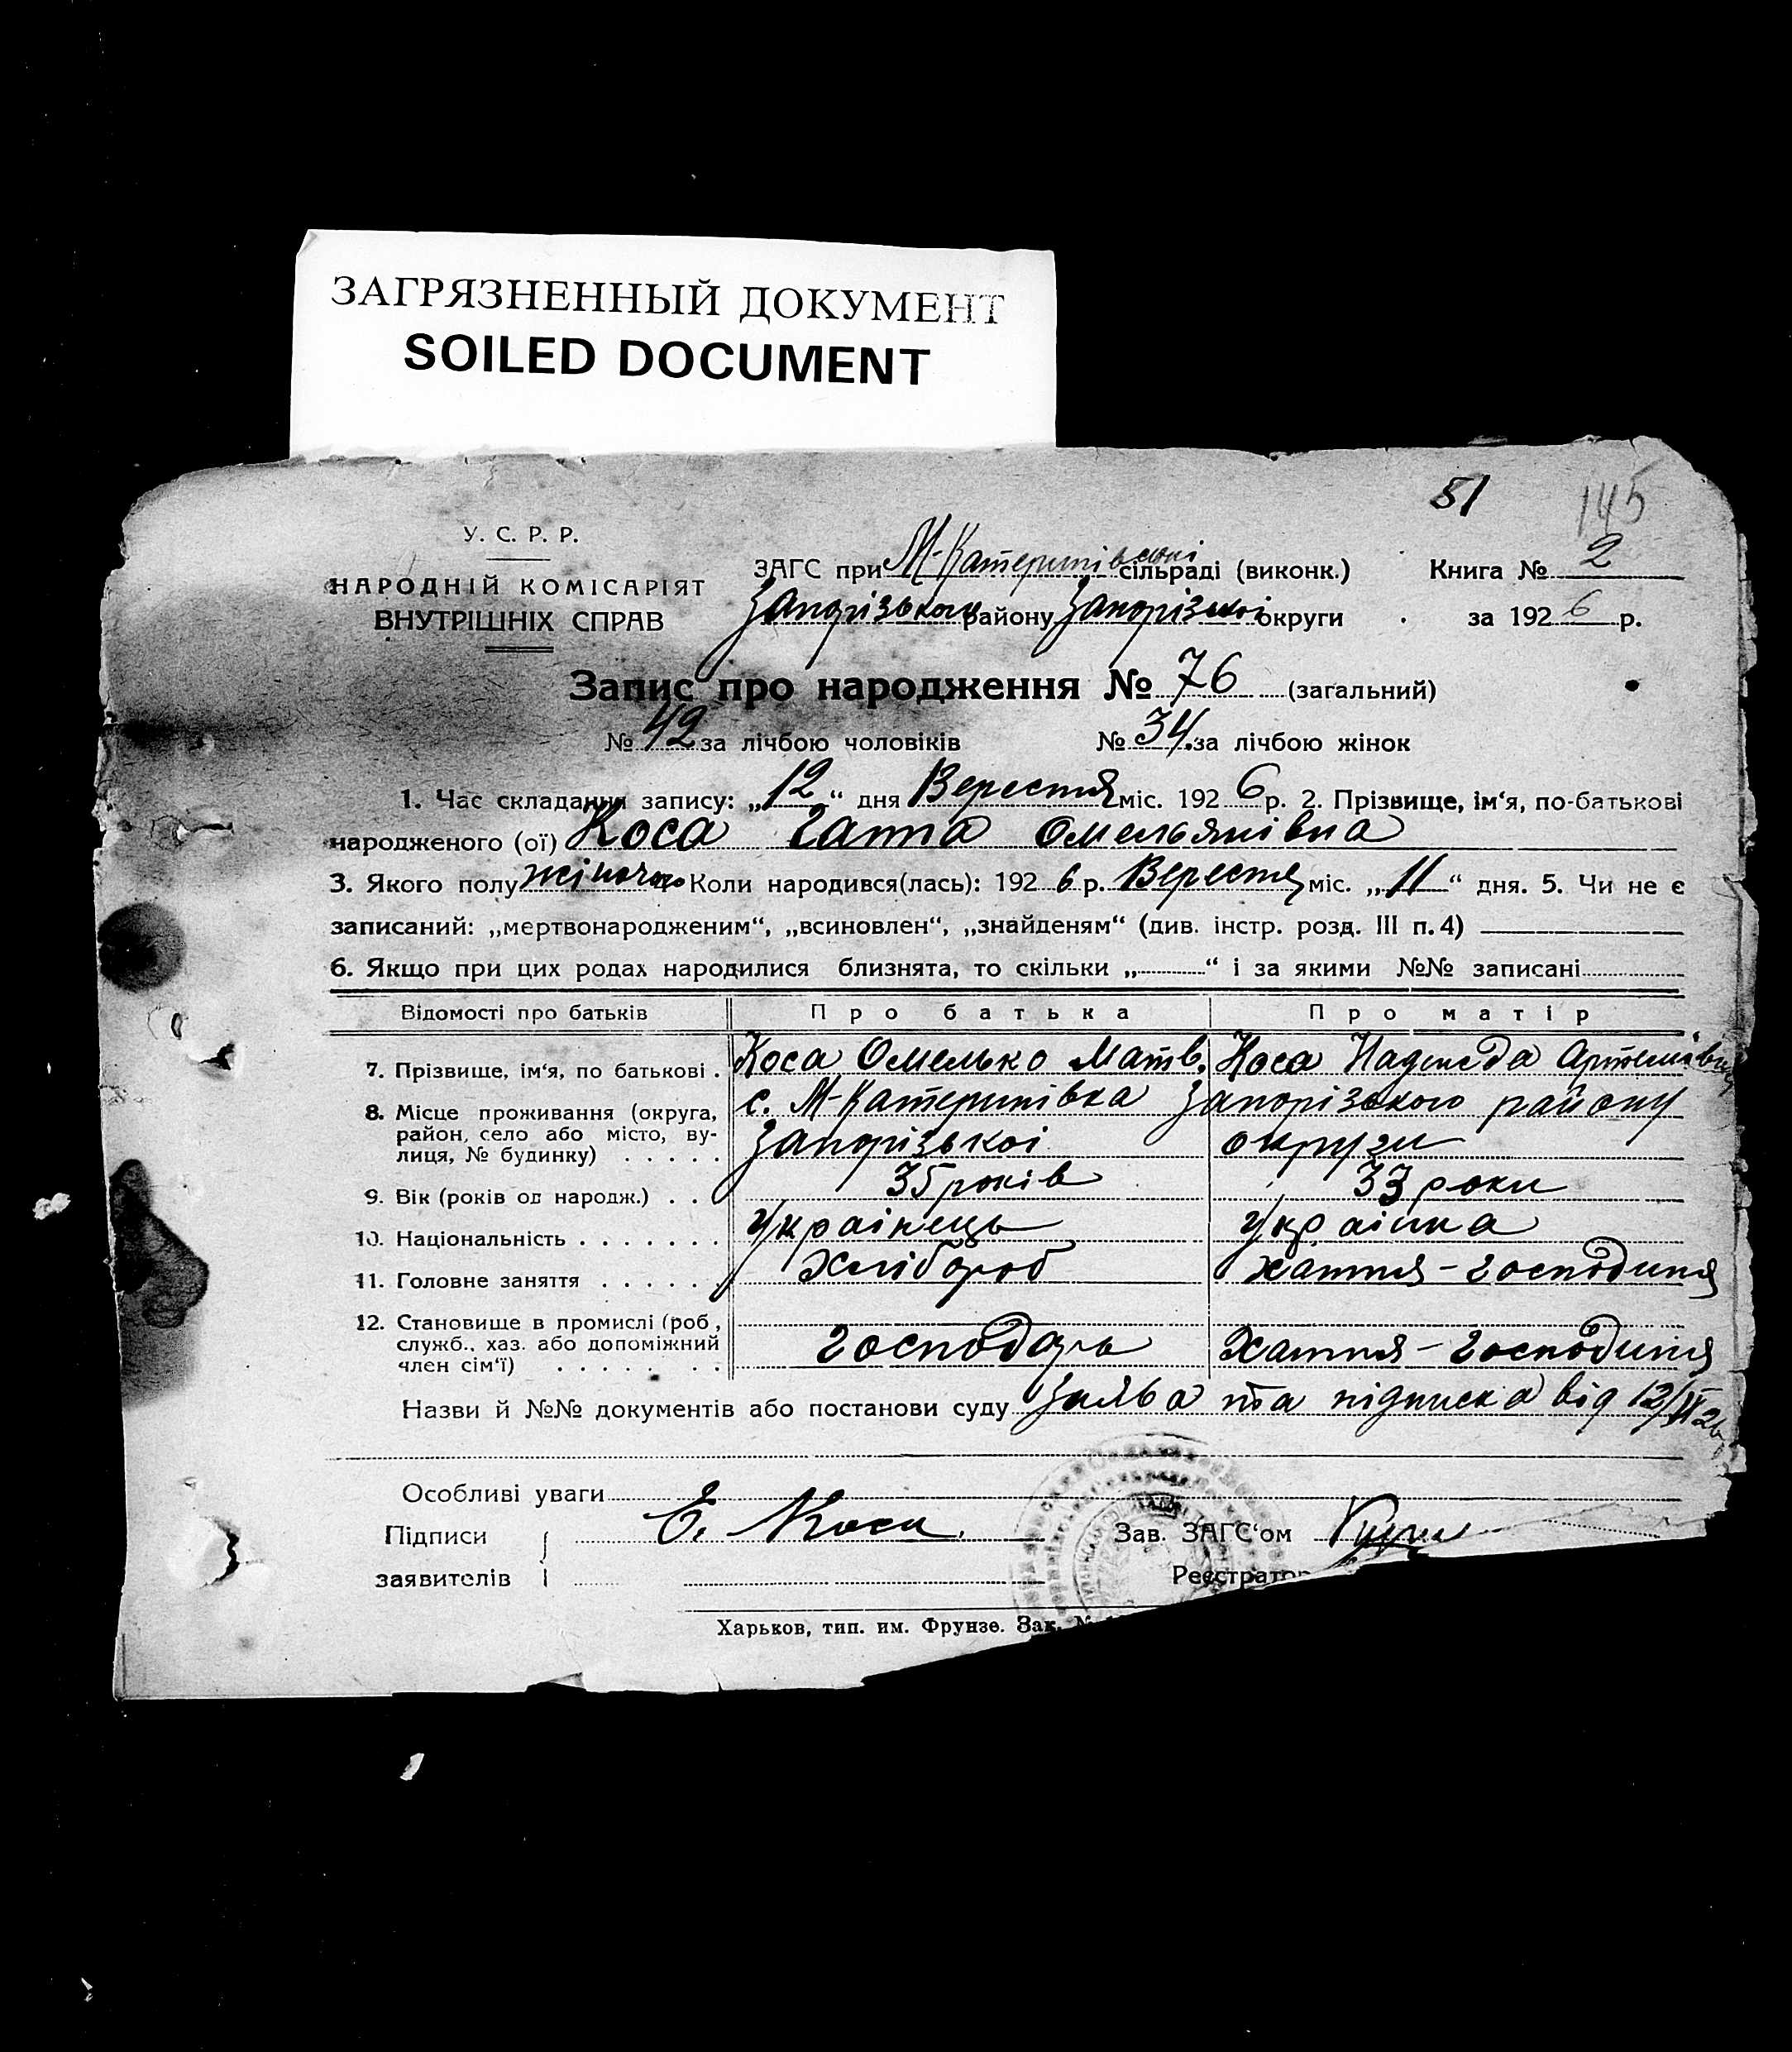 ЗАГРЯЗНЕННЫЙ ДОКУМЕНТ
SOILED DOCUMENT
51 145
У. С. Р. Р.
НАРОДНІЙ КОМІСАРІЯТ
ВНУТРІШНІХ СПРАВ
ЗАГС при М-Катеринівській сільраді (виконк.) Книга № 2
Запорізького району Запорізької округи за 1926 р.
Запис про народження № 76 (загальний)
№ 42 за лічбою чоловіків № 34 за лічбою жінок
1. Час складання запису: „12“ дня Вересня міс. 1926 р. 2. Прізвище, ім‘я, по-батькові
народженого (ої) Коса Ганна Омельянівна
3. Якого полу жіночого Коли народився(лась): 1926 р. Вересня міс. „11“ дня. 5. Чи не є
записаний: „мертвонародженим“, „всиновлен“, „знайденям“ (див. інстр. розд. III п. 4)
6. Якщо при цих родах народилися близнята, то скільки „ “ і за якими №№ записані
Відомості про батьків Про батька Про матір
7. Прізвище, ім‘я, по батькові . Коса Омелько Матв. Коса Надежда Артемівна
8. Місце проживання (округа, с. М-Катеринівка Запорізького району
район, село або місто, ву- Запорізької округи
лиця, № будинку) . . . . .
9. Вік (років од народж.) . . 35 років 33 роки
10. Національність . . . . . . . Українець Українка
11. Головне заняття . . . . . Хлібороб Хатня-господиня
12. Становище в промислі (роб.,
служб., хаз. або допоміжний Господарь Хатня-господиня
член сім‘ї) . . . . . . .
Назви й №№ документів або постанови суду Заява та підписка від 12/IX 26
Особливі уваги
Підписи Е. Коса. Зав. ЗАГС‘ом
заявителів Реєстратор
Харьков, тип. им. Фрунзе. Зак. №